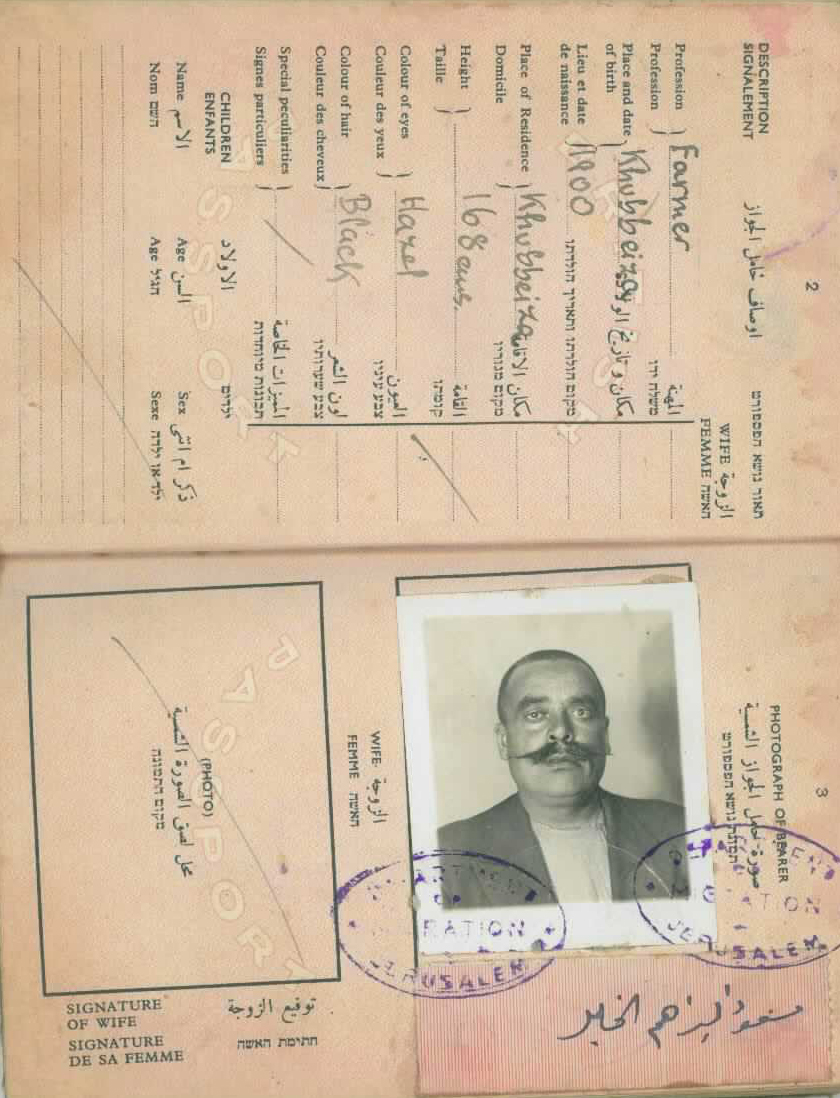 2
DESCRIPTION اوصاف حامل الجواز תאור נושא הפספורט
SIGNALEMENT
WIFE الزوجة
FEMME האשה
Profession } Farmer المهنة
Profession משלח ידו
Place and date of birth } Khubbeiza مكان وتاريخ الولادة
Lieu et date de naissance } 1900 מקום הולדתו ותאריך הולדתו
Place of Residence } Khubbeiza مكان الاقامة
Domicile מקום מגוריו
Height } 168 cms. القامة
Taille קומתו
Colour of eyes } Hazel العيون
Couleur des yeux צבע עיניו
Colour of hair } Black لون الشعر
Couleur des cheveux צבע שערותיו
Special peculiarities } المميزات الخاصة
Signes particuliers תכונות מיוחדות
CHILDREN الاولاد ילדים
ENFANTS
Name الاسم Age السن Sex ذكر ام انثى
Nom השם Age הגיל Sexe ילד או ילדה
PASSPORT
3
PHOTOGRAPH OF BEARER
صورة حامل الجواز الشمسية
תמונת נושא הפספורט
DEPARTMENT OF MIGRATION JERUSALEM
DEPARTMENT OF MIGRATION JERUSALEM
WIFE الزوجة
FEMME האשה
(PHOTO)
محل لصق الصورة الشمسية
מקום התמונה
PASSPORT
مسعود ابراهيم
SIGNATURE OF WIFE توقيع الزوجة
SIGNATURE DE SA FEMME חתימת האשה